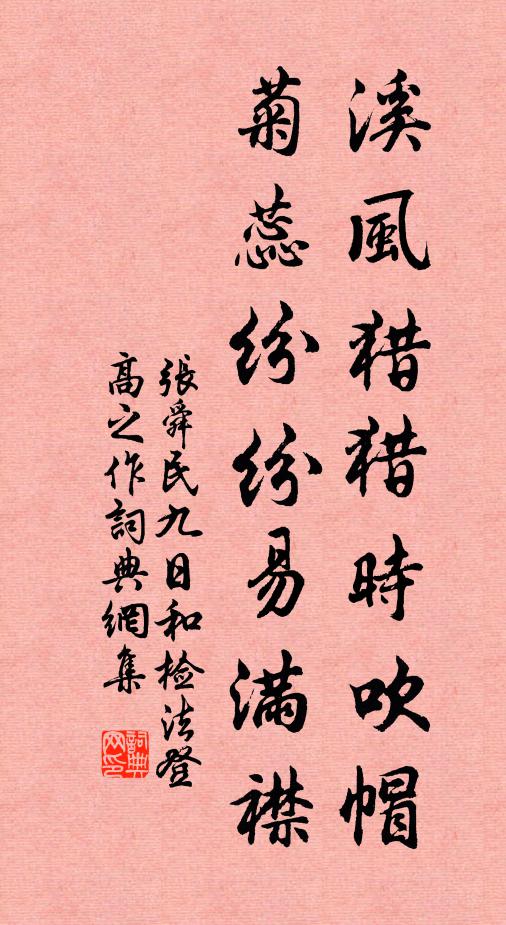 溪風猎猎時吹帽
菊蕊紛紛易滿襟
張舜民九日和檢法登
高之作詞典網集
詞典
网印